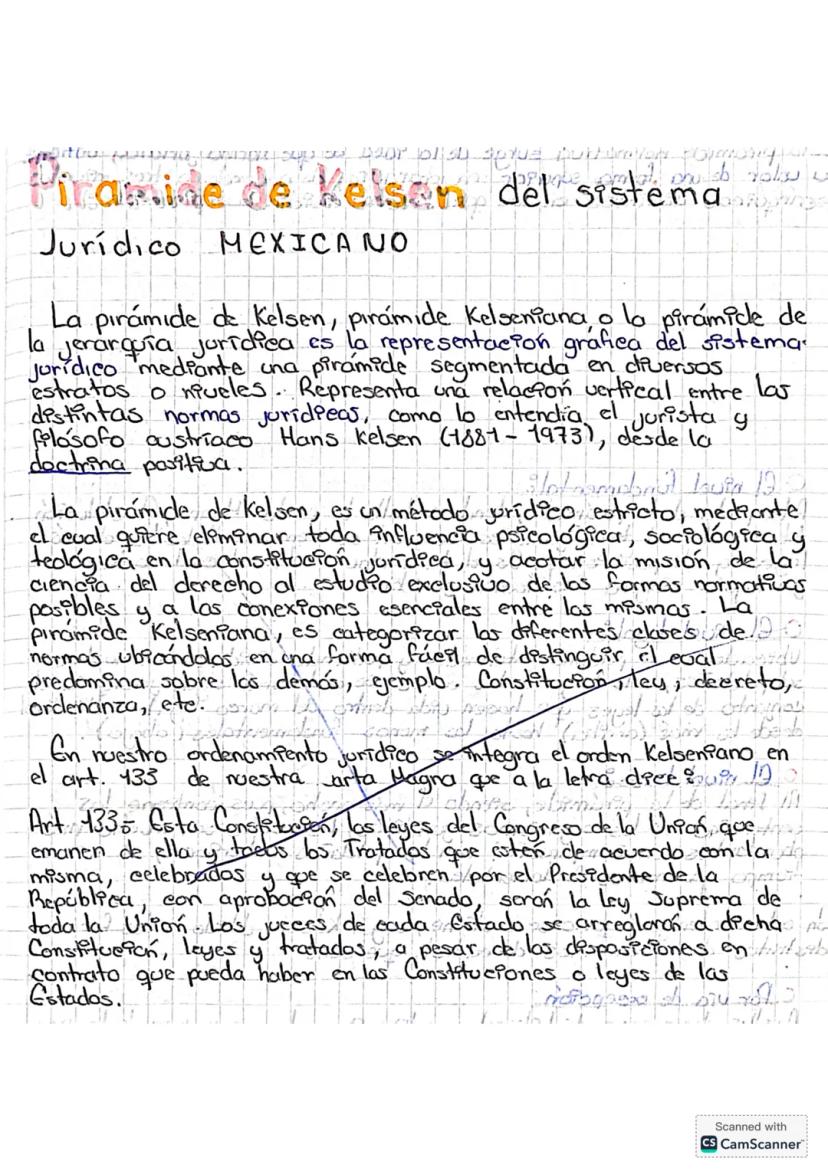 Piramide de Kelsen del sistema
Jurídico MEXICANO
La pirámide de Kelsen, pirámide Kelseniana, o la pirámide de
la jerarquía jurídica es la representación gráfica del sistema
jurídico mediante una pirámide segmentada en diversos
estratos o niveles. Representa una relación vertical entre las
distintas normas jurídicas, como lo entendía el jurista y
filósofo austríaco Hans Kelsen (1881 - 1973), desde la
doctrina positiva.
La pirámide de Kelsen, es un método jurídico estricto, mediante
el cual quiere eliminar toda influencia psicológica, sociológica y
teológica en la constitución jurídica, y acotar la misión de la
ciencia del derecho al estudio exclusivo de las formas normativas
posibles y a las conexiones esenciales entre las mismas. La
pirámide Kelseniana, es categorizar las diferentes clases de
normas ubicándolas en una forma fácil de distinguir el cual
predomina sobre las demás, ejemplo. Constitución, ley, decreto,
ordenanza, etc.
En nuestro ordenamiento jurídico se integra el orden Kelseniano en
el art. 133 de nuestra carta Magna que a la letra dice:
Art. 133- Esta Constitución, las leyes del Congreso de la Unión, que
emanen de ella y todos los Tratados que estén de acuerdo con la
misma, celebrados y que se celebren por el Presidente de la
República, con aprobación del Senado, serán la Ley Suprema de
toda la Unión. Los jueces de cada Estado se arreglarán a dicha
Constitución, leyes y tratados, a pesar de las disposiciones en
contrato que pueda haber en las Constituciones o leyes de las
Estados.
Scanned with
CS CamScanner